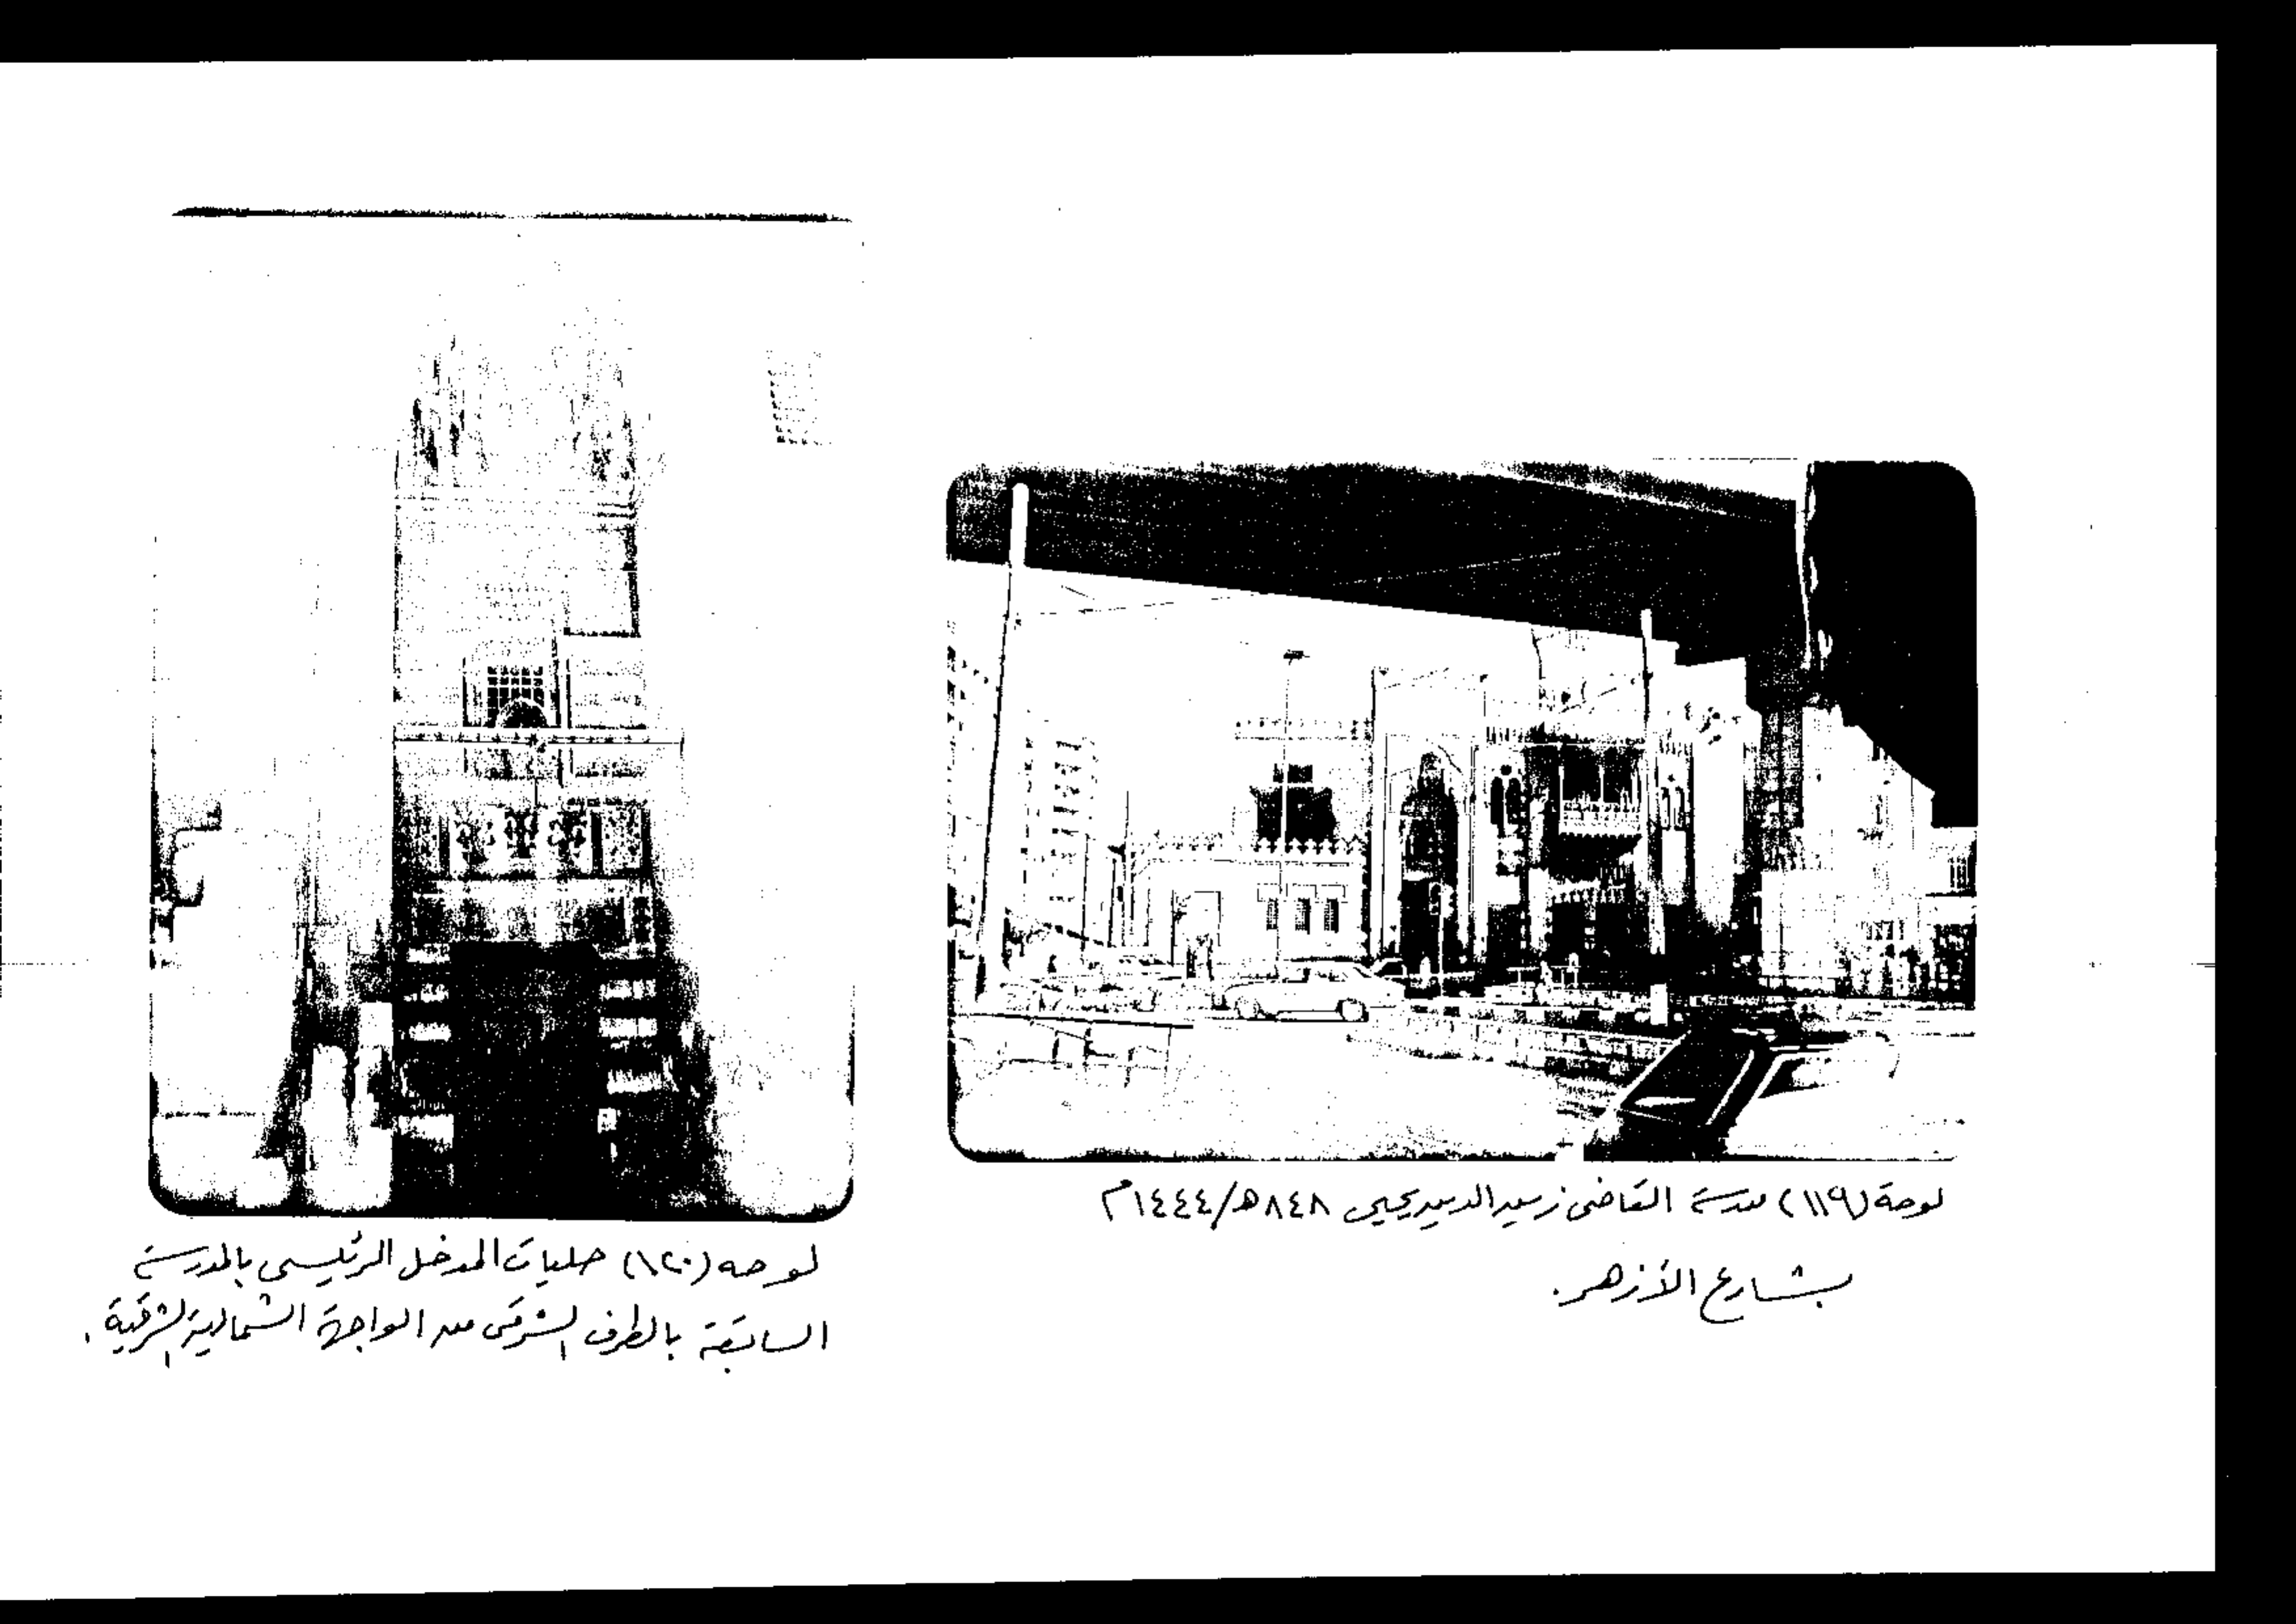 لوحة (١١٩) مدرسة القاضى زين الدين يحيى ٨٤٨هـ/١٤٤٤م
بشارع الأزهر.
لوحه (١٢٠) حليات المدخل الرئيسى بالمدرسة
السابقة بالطرف الشرقى من الواجهة الشمالية الشرقية.